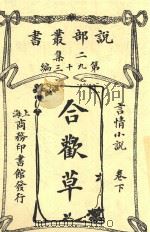 說部叢書
第二集
第九十三編
言情小說 卷下
合歡草
上海商務印書館發行